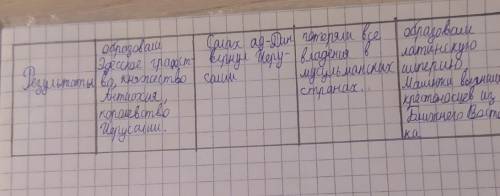 Результаты
образовали
Эдесское графст-
во, княжество
Антиохия,
королевство
Иерусалим.
Салах ад-Дин
вернул Иеру-
салим
потеряли все
владения в
мусульманских
странах.
образовали
латинскую
империю
Мамлюки вытеснили
крестоносцев из
Ближнего Восто-
ка